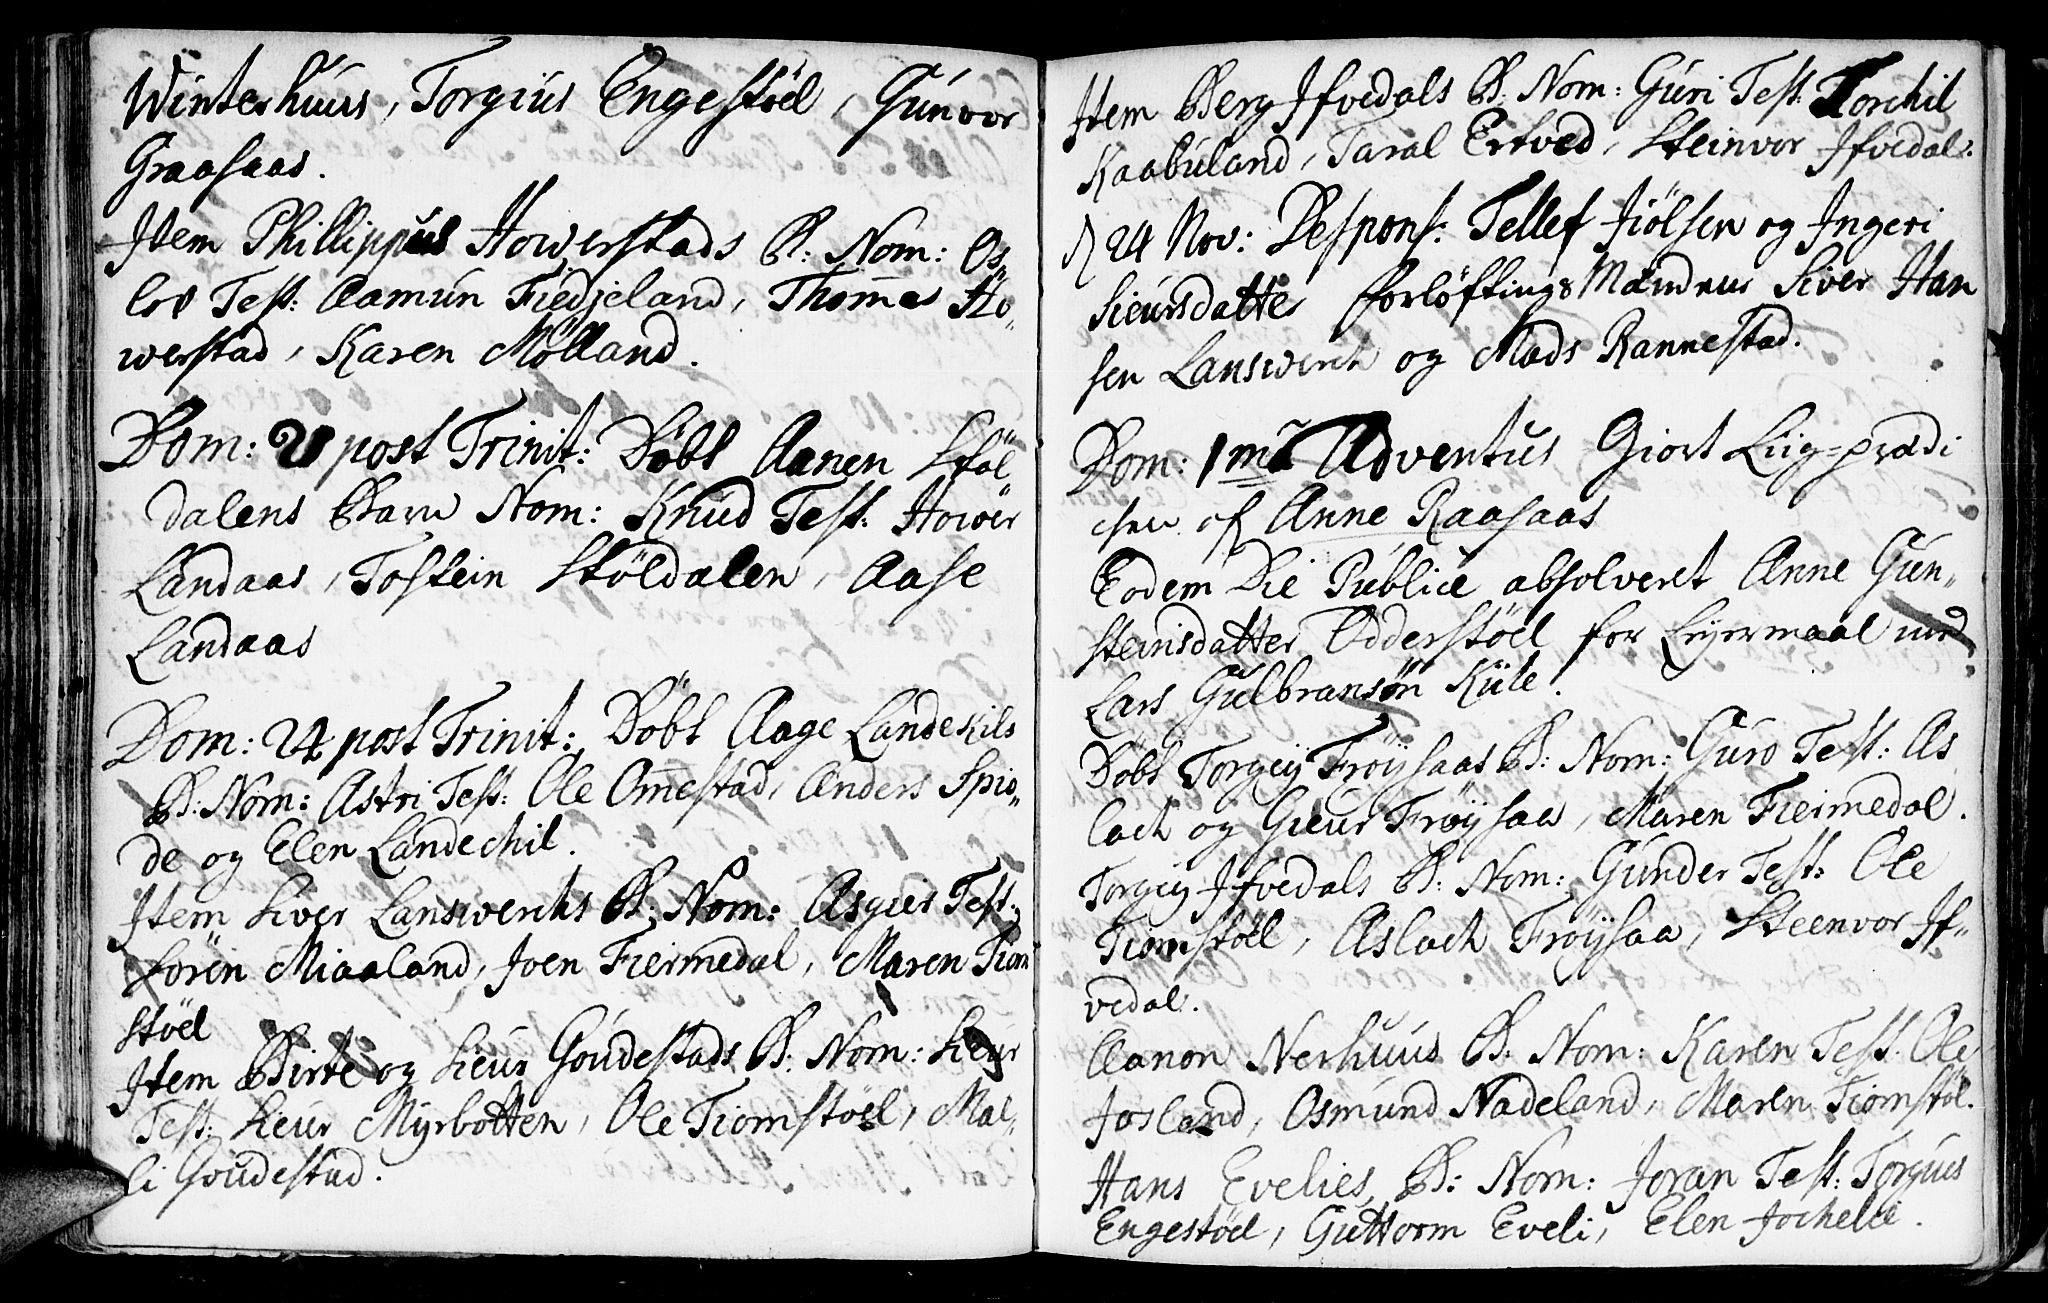 Winterhuus, Torgius Engestøel, Gunvor
Graasaas.
Item Phillippus Howerstads B: Nom: Os,,
lov Test: Aamun Fiedjeland, Thomas Ho,,
werstad, Karen Mölland.
Dom: 21 post Trinit: Döbt Aanen Stöl,,
dalens Barn Nom: Knud Test: Hower
Landaas, Tostein Stöldalen, Aase
Landaas
Dom: 24 post Trinit: Döbt Aage Landekils
B: Nom: Astri Test: Ole Omestad, Anders Spio,,
de og Elen Landechil.
Item Siver Lanswerchs B: Nom: Asgier Test:
Sören Miaaland, Joen Fiermedal, Maren Tiom
støel
Item Birte og Sieur Goudestads B: Nom: Sieur
Test: Sieur Myrbotten, Ole Tiomstøel, Mal,,
li Goudestad.
Item Berg Ifvedals B: Nom: Guri Test: Torchil
Kaabuland, Taral Ertved, Steinvor Ifvedal.
D 24 Nov: Despons: Tellef Siölsen og Ingeri
Sieursdatter forlöftings Mændene Siver Han
sen Lanswerk og Mads Rannestad.
Dom: 1mâ Adventus Giort Liig-prædi
chen af Anne Raasaas
Eodem Die Publice absolveret Anne Gun,,
steinsdatter Odderstøel for Leyermaal med
Lars Gulbransøn
Döbt Torgiey Frøysaas B: Nom: Guro Test: As
lach og Gieur Frøysaa, Maren Fiermedal.
Torgiey Ifvedals B: Nom: Gunder Test: Ole
Tiomstøel, Aslach Frøysaa, Steenvor If,,
vedal.
Aanon Nerhuus B: Nom: Karen Test: Ole
Josland, Osmund Nadeland, Maren Tiomstöl.
Hans Evelies B: Nom: Joran Test: Torgius
Engestøel, Guttorm Eveli, Elen